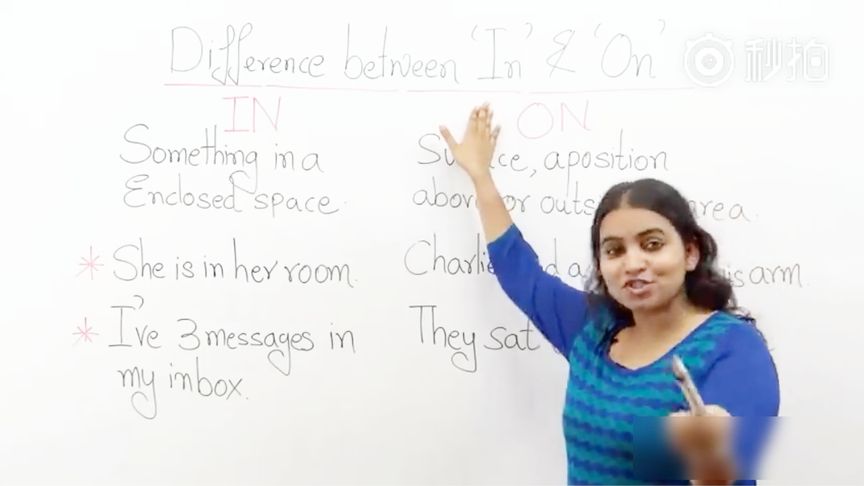 Difference between 'In' & 'On'
秒拍
IN
Something in a
Enclosed space.
* She is in her room.
* I've 3 messages in
my inbox.
ON
aposition
or area.
Charlie arm.
They sat